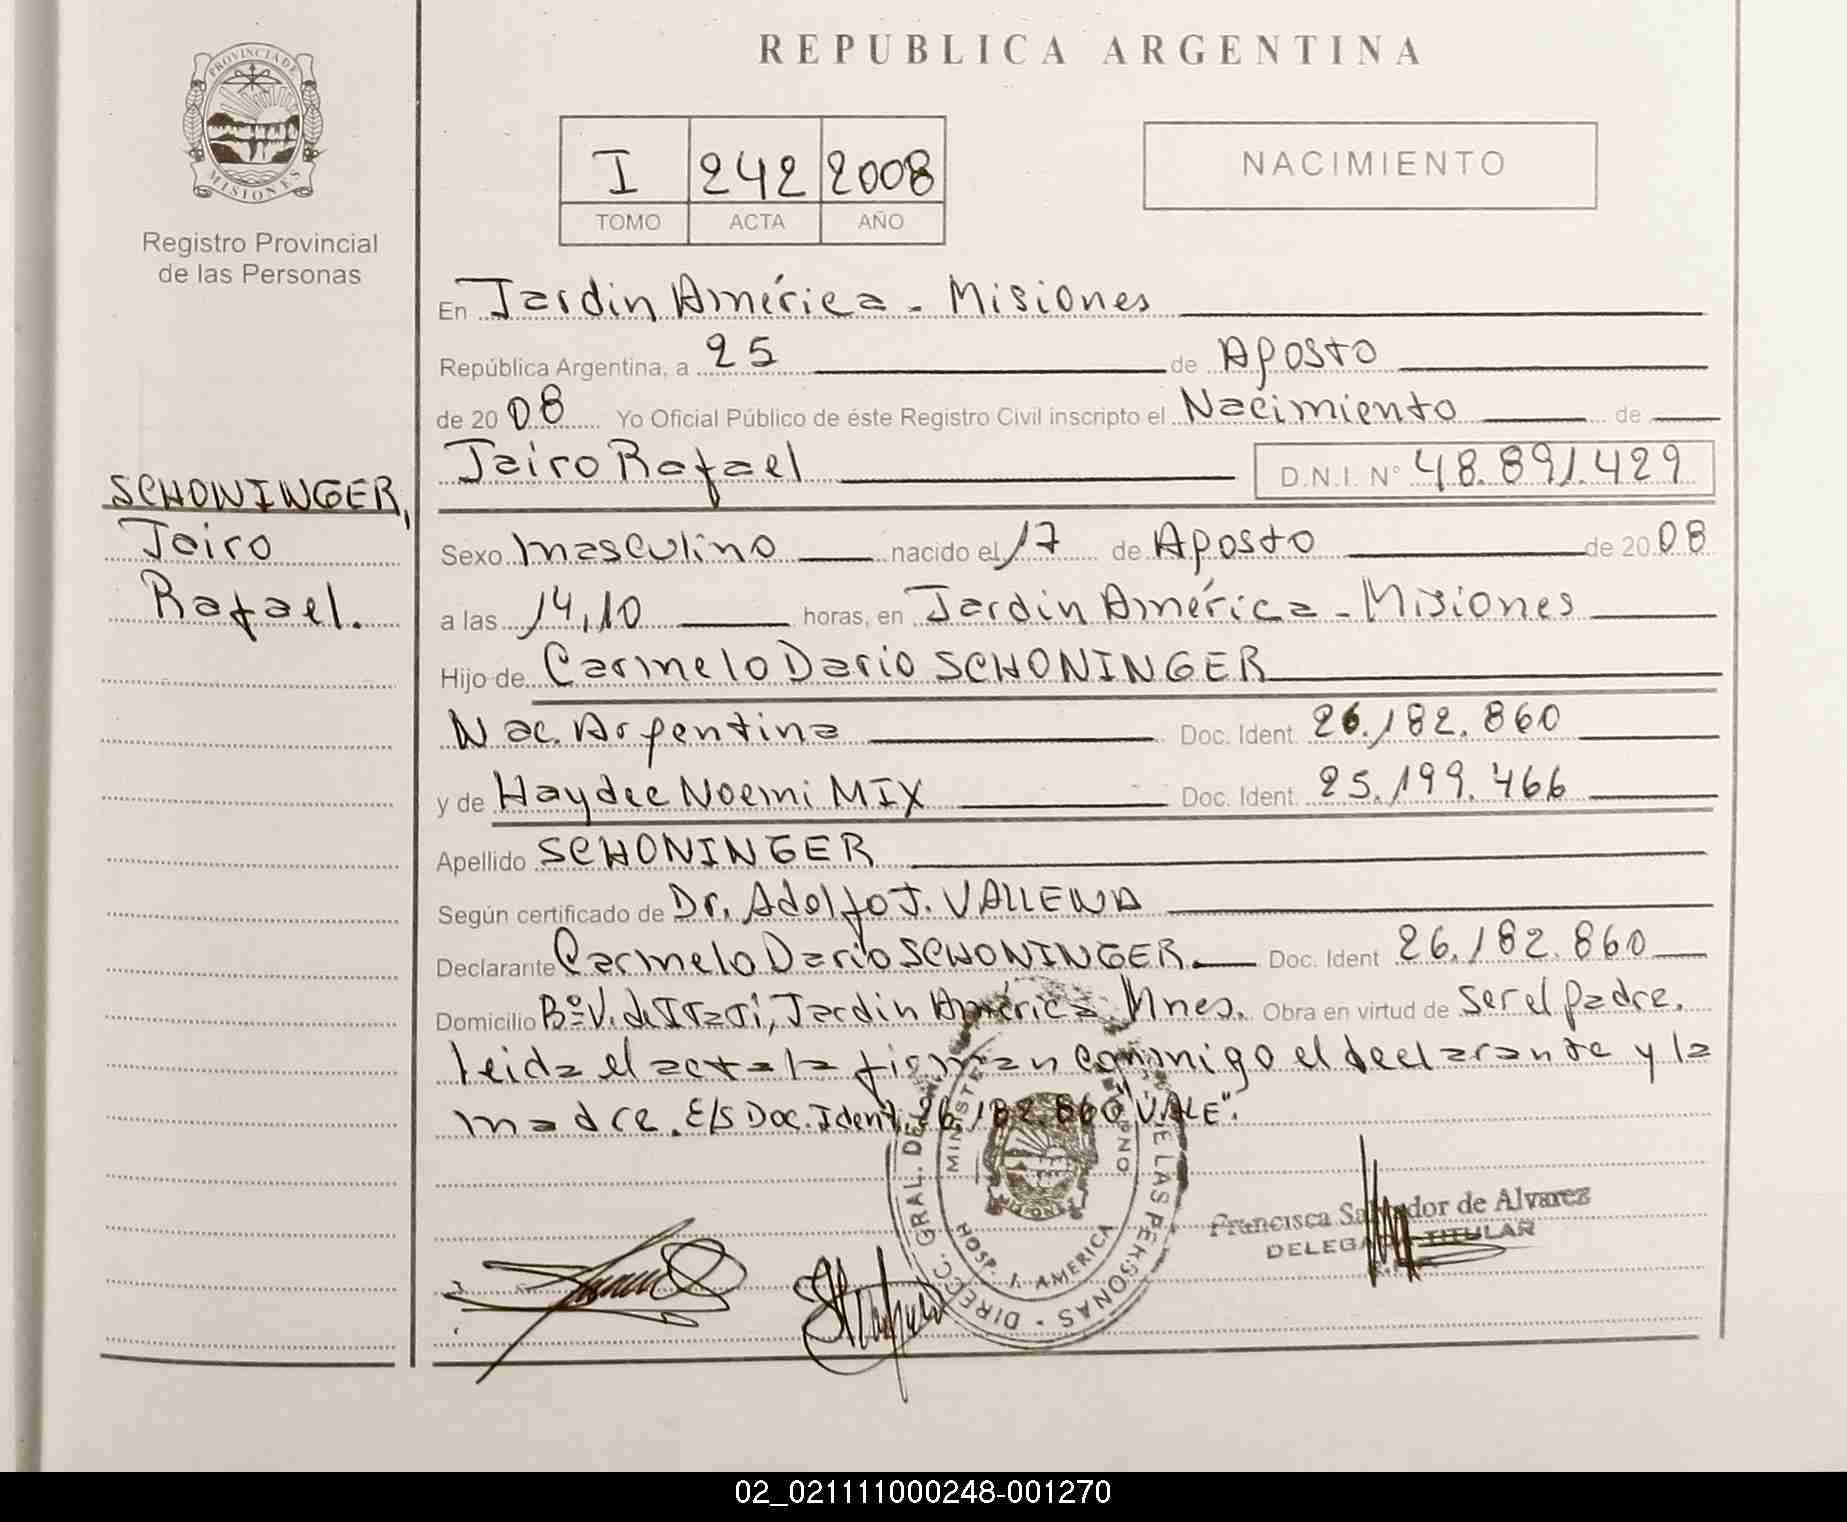 REPUBLICA ARGENTINA
PROVINCIA DE
MISIONES
Registro Provincial
de las Personas
I 242 2008
TOMO ACTA AÑO
NACIMIENTO
En Jardin América - Misiones
República Argentina, a 25 de Agosto
de 2008 Yo Oficial Público de éste Registro Civil inscripto el Nacimiento de
Jairo Rafael D.N.I. N° 48.891.429
SCHONINGER,
Jairo
Rafael.
Sexo masculino nacido el 17 de Agosto de 2008
a las 14,10 horas, en Jardin América - Misiones
Hijo de Carmelo Dario SCHONINGER
Nac. Argentina Doc. Ident. 26.182.860
y de Haydee Noemi MIX Doc. Ident. 25.199.466
Apellido SCHONINGER
Según certificado de Dr. Adolfo J. VALLENA
Declarante Carmelo Dario SCHONINGER. Doc. Ident 26.182.860
Domicilio Bº V. de Itatí, Jardin América. Mnes. Obra en virtud de ser el padre.
leida el acta la firman conmigo el declarante y la
madre. E/S Doc. Ident. 26.182.860 "VALE".
DIRECC. GRAL. DEL DE LAS PERSONAS
HOSP. J. AMERICA
Francisca Salvador de Alvarez
DELEGADA TITULAR
02_021111000248-001270